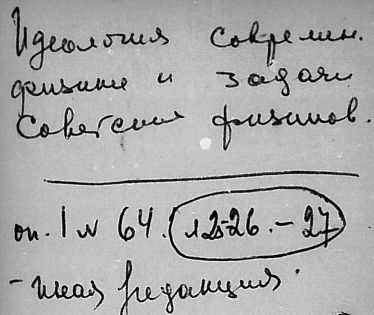 Идеология современ.
физики и задачи
Советских физиков.
оп. 1 № 64. л 25-26. – 27
– иная редакция.